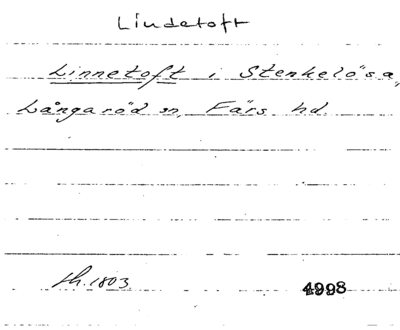 Lindetoft
Linnetoft i Stenkelösa,
Långaröd sn, Färs hd.
th. 1803
4998